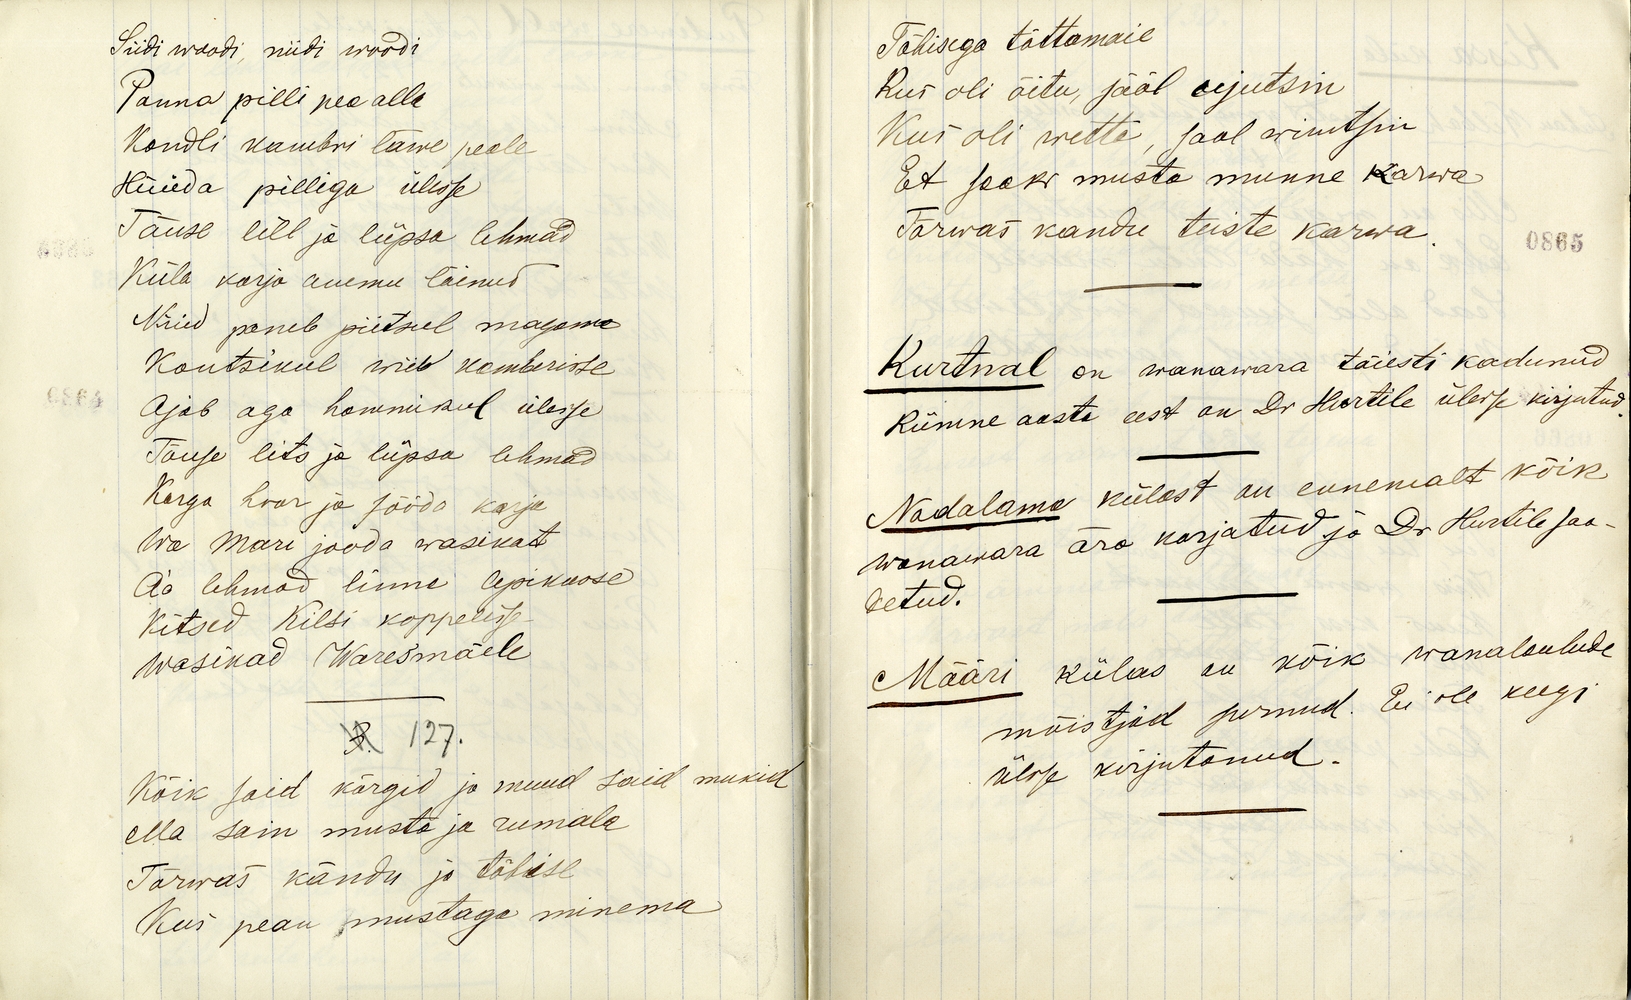 Siidi woodi, niidi woodi
Panna pilli pea alla
Kandli kambri läwe peale
Hüüda pilliga ülesse
Tõuse lill ja lüpsa lehmad
Küla karja ammu läinud
Nüüd paneb piitsul magama
Kantsikul wiib kamberisse
Ajab aga hommikul ülesse
Tõuse lits ja lüpsa lehmad
Karga hoor ja sööda karja
Wa Mari jooda wasikat
Aa lehmad linna lepikusse
Kitsed Kiltsi koppelisse
Wasikad Waresmäele
127.
Kõik said kärgid ja muud said mukid
Ma sain musta ja rumala
Tõrwas kändu ja tõbise
Kus pean mustaga minema
Tõbisega tõttamaie
Kus oli õitu, sääl ujutsin
Kus oli wetta, sääl wiivtsin
Et saaks musta munne karwa
Tõrwas kandu teiste karwa.
0865
Kurtnal on wanawara täiesti kadunud
Kümne aasta eest on Dr Hurtile ülesse kirjutud.
Nadalama külast on ennemalt kõik
wanawara ära korjatud ja Dr Hurtile saa-
detud.
Määri külas on kõik wanalaulude
mõistjad surnud. Ei ole keegi
ülesse kirjutanud.
0864